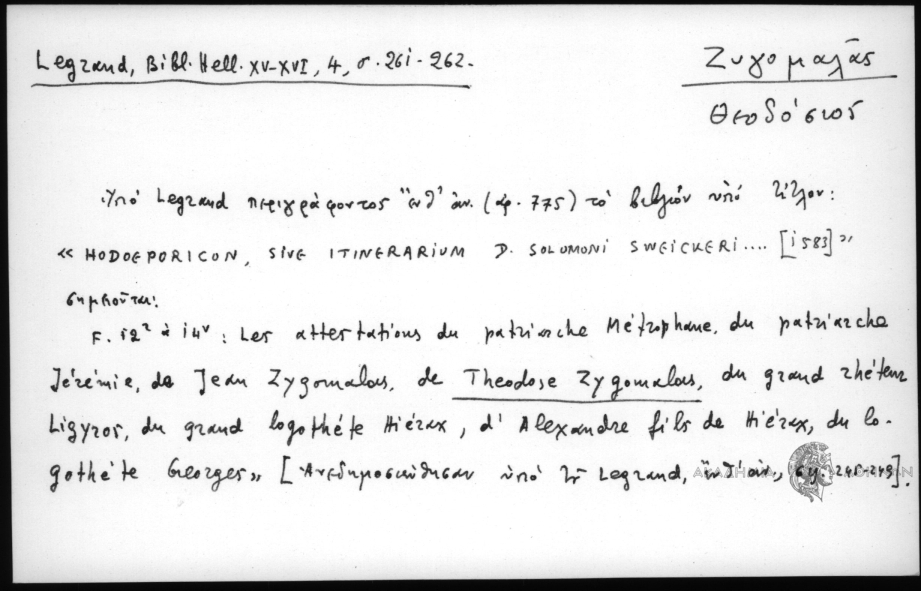 Legrand, Bibl. Hell. XV-XVI, 4, σ. 261-262.
Ζυγομαλᾶς
Θεοδόσιος
Ὑπό Legrand περιγράφοντος "ἐνθ' ἀν. (ἀρ. 775) τό βιβλίον ὑπό τίτλον:
« HODOEPORICON, SIVE ITINERARIUM D. SOLOMONI SWEICKERI.... [1583] »
σημειοῦται:
F. 12ʳ à 14ᵛ : Les attestations du patriarche Métrophane, du patriarche
Jérémie, de Jean Zygomalas, de Theodose Zygomalas, du grand rhéteur
Ligyros, du grand logothéte Hiérax, d'Alexandre fils de Hiérax, du lo-
gothéte Georges» [Ἀνεδημοσιεύθησαν ὑπό τοῦ Legrand, ἔνθ' ἀν., 248-249].